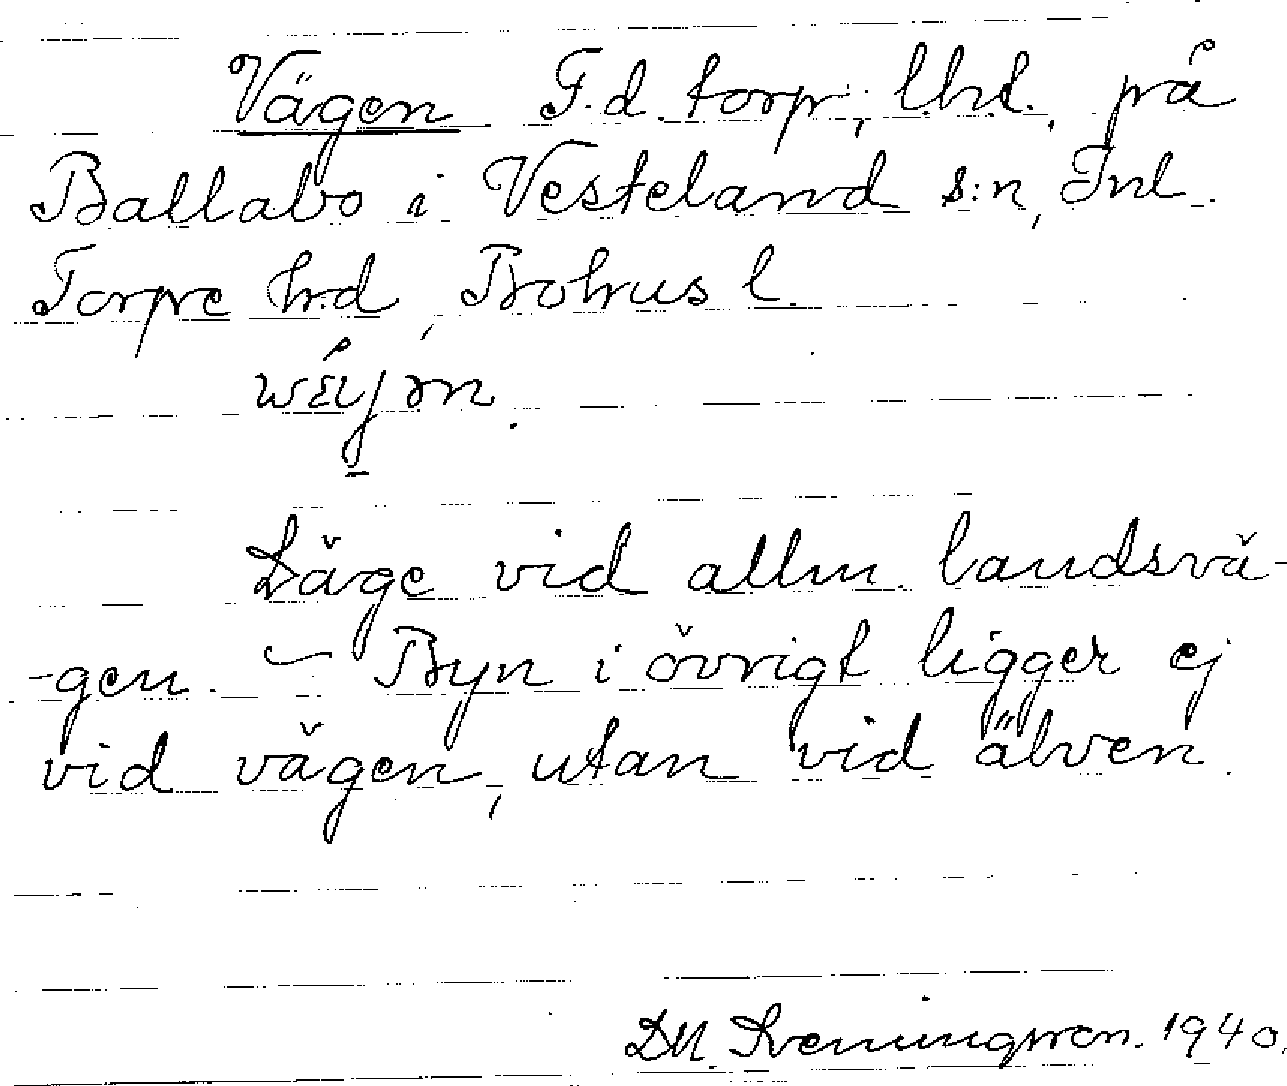 Vägen F.d. torp, lht. på
Ballabo i Vesteland s:n, Inl.
Torpe h:d, Bohus l.
Läge vid allm. landsvä-
-gen. — Byn i övrigt ligger ej
vid vägen, utan vid älven.
DM. Sveningson. 1940.